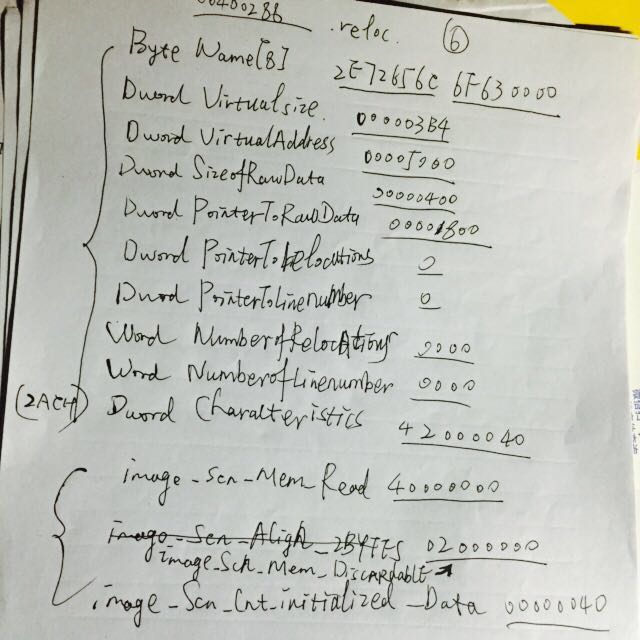 00400288 .reloc. ⑥
Byte Name[8] 2E72656C 6F630000
Dword Virtualsize. 000003B4
Dword VirtualAddress 00005000
Dword SizeofRawData 00000400
Dword PointerToRawData 00001800
Dword PointerToRelocations 0
Dword PointerToLinenumber 0
Word NumberofRelocAtions 0000
Word NumberofLinenumber 0000
(2ACH) Dword Charateristics 42000040
image_Scn_Mem_Read 40000000
image_Scn_Align_2BYTES 02000000
image_Scn_Mem_Discardable
image_Scn_Cnt_initialized_Data 00000040